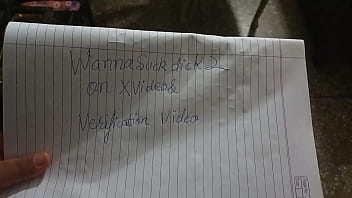 Wannasuckdick2_
on XVideos
Verification Video